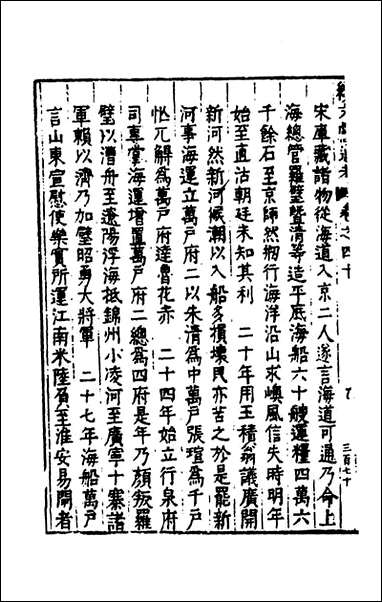 續文獻通考 卷之四十
三百七十
宋庫藏諸物從海道入京二人遂言海道可通乃命上
海總管羅璧暨清等造平底海船六十艘運糧四萬六
千餘石至京師然剏行海洋沿山求嶼風信失時明年
始至直沽朝廷未知其利 二十年用王積翁議廣開
新河然新河候潮以入船多損壞民亦苦之於是罷新
河事海運立萬戶府二以朱清為中萬戶張瑄為千戶
忙兀䚟為萬戶府達魯花赤 二十四年始立行泉府
司專掌海運增置萬戶府二總為四府是年乃顏叛羅
璧以漕舟至遼陽浮海抵錦州小凌河至廣寧十寨諸
軍賴以濟乃加璧昭勇大將軍 二十七年海船萬戶
言山東宣慰使樂實所運江南米陸負至淮安易閘者